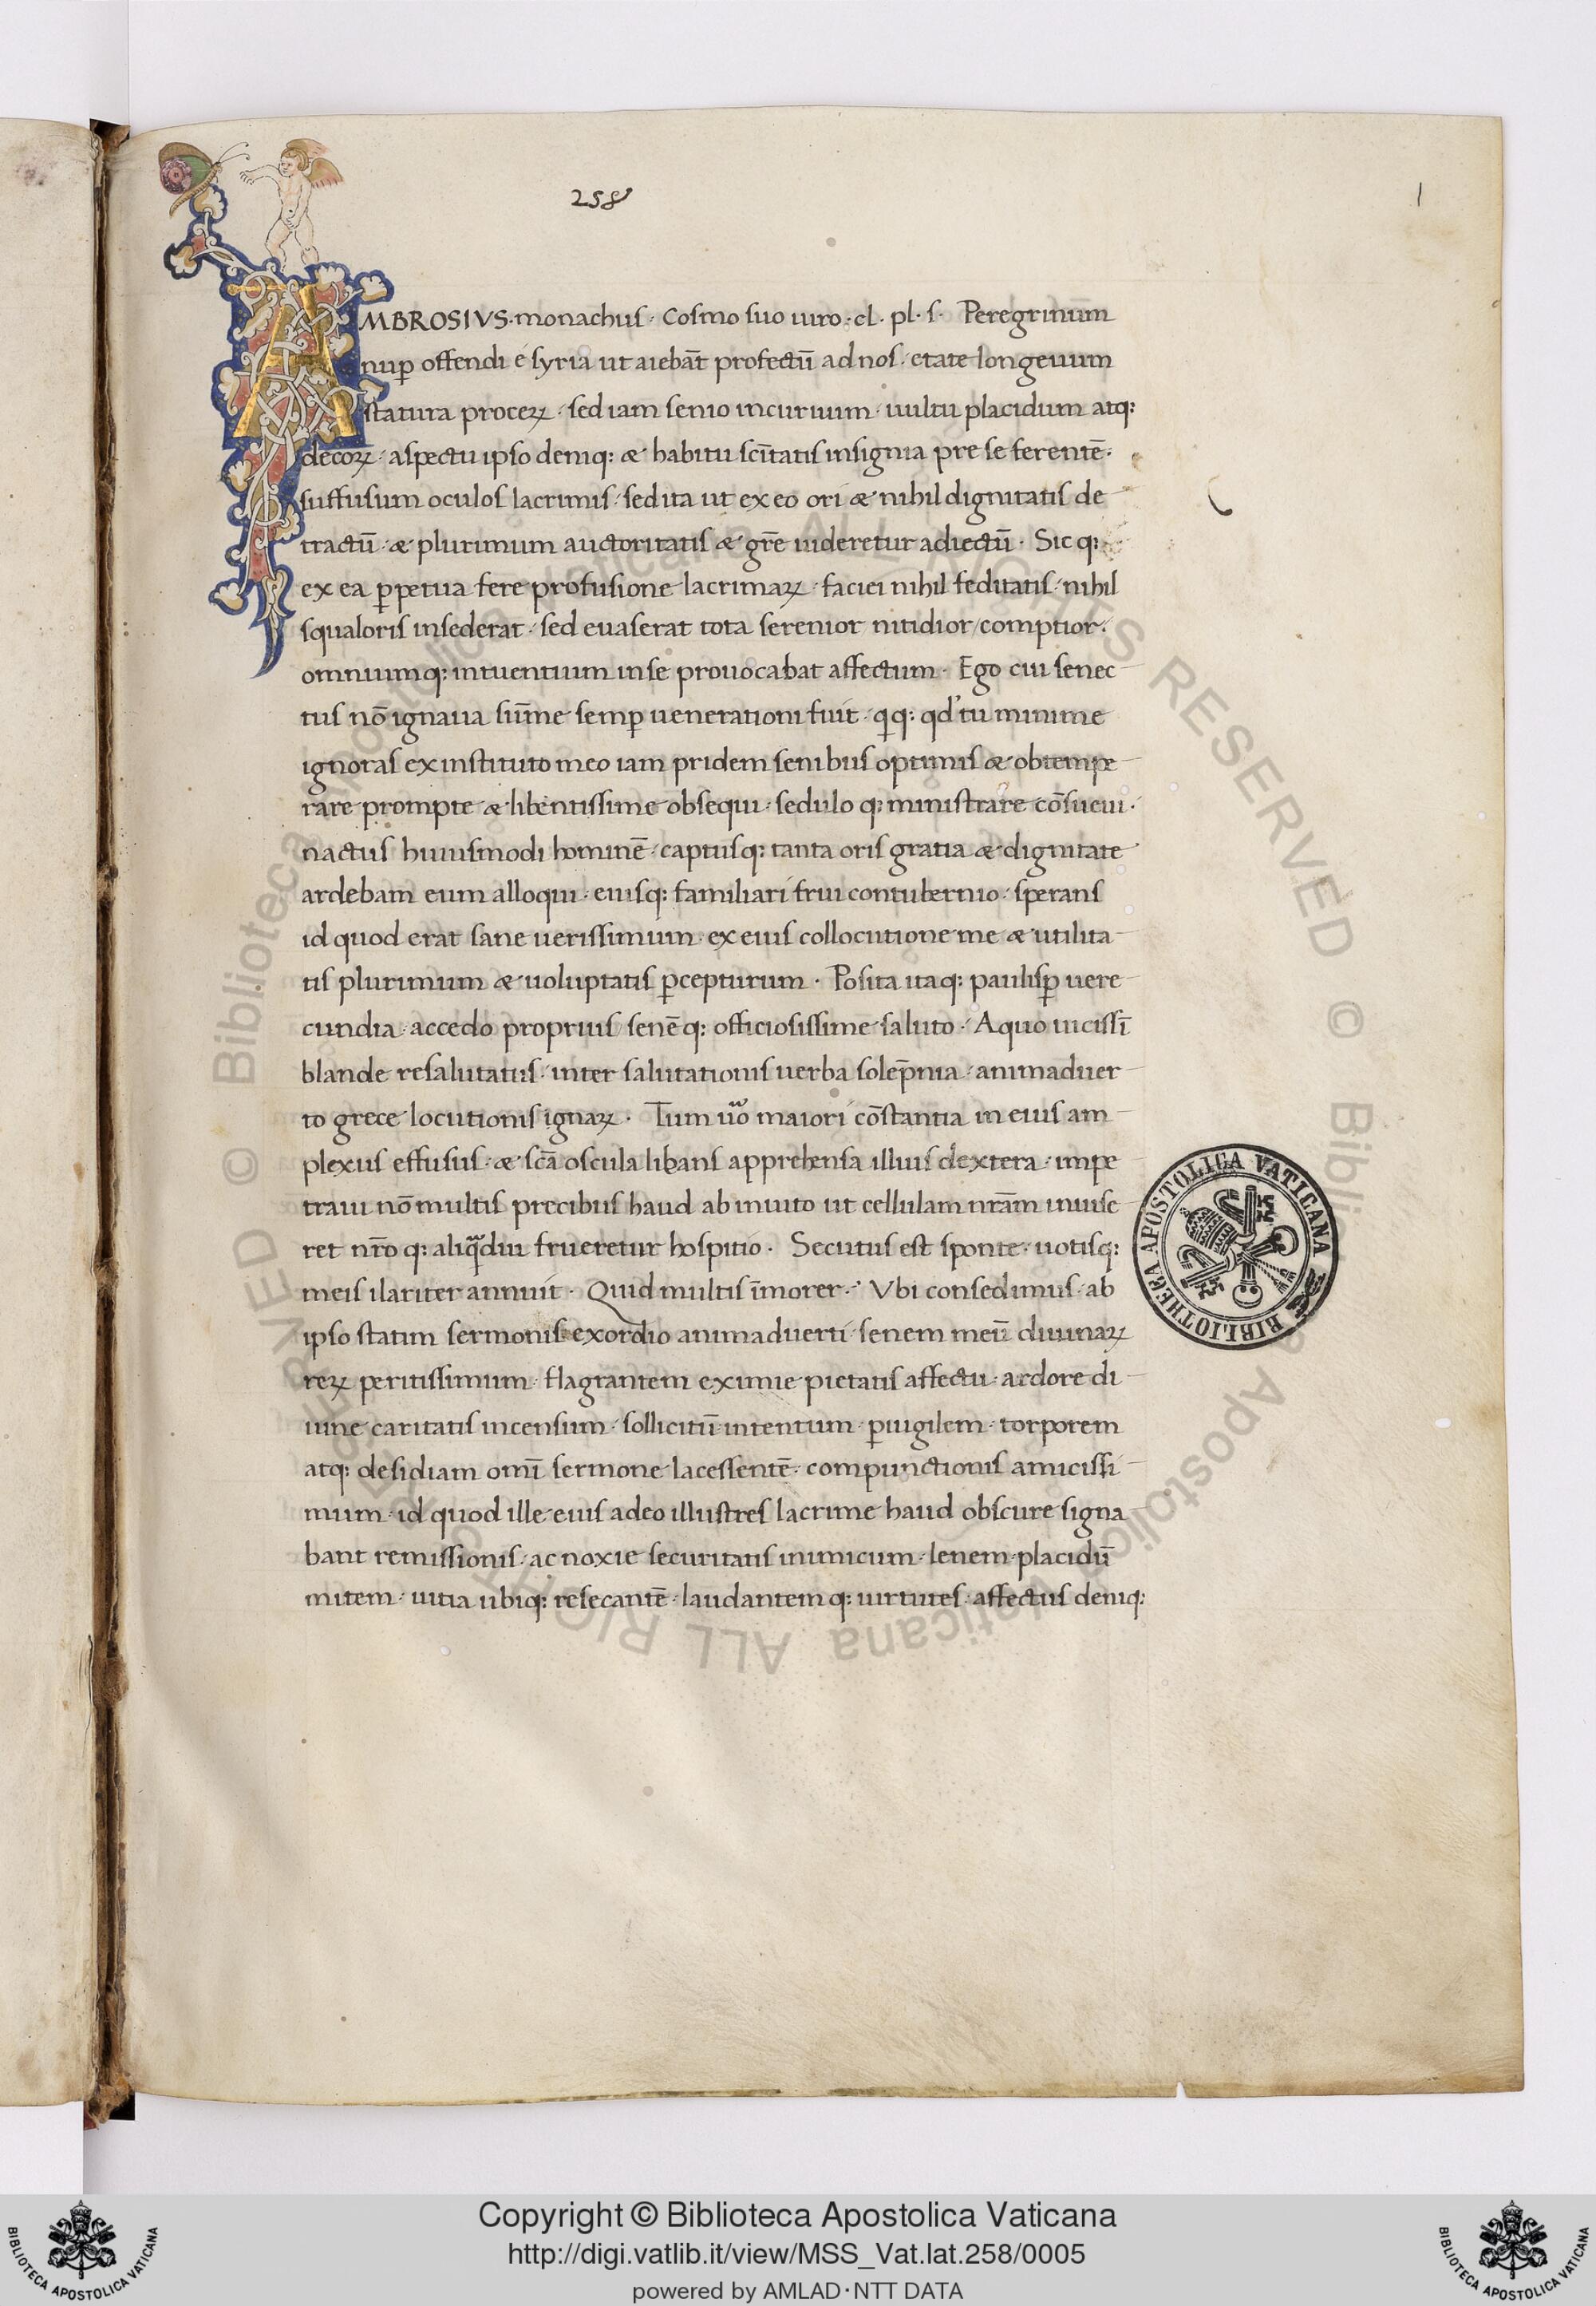 258
1
AMBROSIVS·monachus· Cosmo suo uiro·cl· pl· s· Peregrinum
nuꝑ offendi e syria ut aiebāt profectū ad nos· etate longeuum
statura proceꝝ· sed iam senio incuruum· uultu placidum atq:
decoꝝ· aspectu ipso deniq: & habitu scītatis insignia pre se ferentē·
suffusum oculos lacrimis· sed ita ut ex eo ori & nihil dignitatis de
tractū· & plurimum auctoritatis & grē uideretur adiectū· Sic q:
ex ea ꝑpetua fere profusione lacrimaꝝ· faciei nihil feditatis· nihil
squaloris insederat· sed euaserat tota serenior nitidior/comptior·
omniumq: intuentium in se prouocabat affectum· Ego cui senec
tus nō ignaua sūme semꝑ uenerationi fuit· qq: qd' tu minime
ignoras ex instituto meo iam pridem senibus optimis & obtempe
rare prompte & libentissime obsequi· sedulo q: ministrare cōsueui·
nactus huiusmodi hominē· captusq: tanta oris gratia & dignitate
ardebam eum alloqui· eiusq: familiari frui contubernio· sperans
id quod erat sane uerissimum· ex eius collocutione me & utilita
tis plurimum & uoluptatis ꝑcepturum· Posita itaq: paulisꝑ uere
cundia· accedo proprius senēq: officiosissime saluto· A quo uicissī
blande resalutatus· inter salutationis uerba solēpnia· animaduer
to grece locutionis ignaꝝ· Tum uo maiori cōstantia in eius am
plexus effusus· & scā oscula libans apprehensa illius dextera· impe
traui nō multis precibus haud ab inuito ut cellulam nrām inuise
ret nrō q: aliqdiu frueretur hospitio· Secutus est sponte· uotisq:
meis ilariter annuit· Quid multis īmorer· Vbi consedimus· ab
ipso statim sermonis exordio animaduerti senem meū diuinaꝝ
reꝝ peritissimum· flagrantem eximie pietatis affectu· ardore di
uine caritatis incensum· sollicitū intentum· ꝑuigilem· torporem
atq: desidiam omī sermone lacessentē· compunctionis amicissi
mum· id quod ille eius adeo illustres lacrime haud obscure signa
bant remissionis· ac noxie securitatis inimicum· lenem placidū
mitem· uitia ubiq: resecantē· laudantem q: uirtutes· affectus deniq:
BIBLIOTHECA APOSTOLICA VATICANA
© Biblioteca Apostolica Vaticana ALL RIGHTS RESERVED © Biblioteca Apostolica Vaticana ALL RIGHTS RESERVED
Copyright © Biblioteca Apostolica Vaticana
http://digi.vatlib.it/view/MSS_Vat.lat.258/0005
powered by AMLAD·NTT DATA
BIBLIOTECA APOSTOLICA VATICANA
BIBLIOTECA APOSTOLICA VATICANA